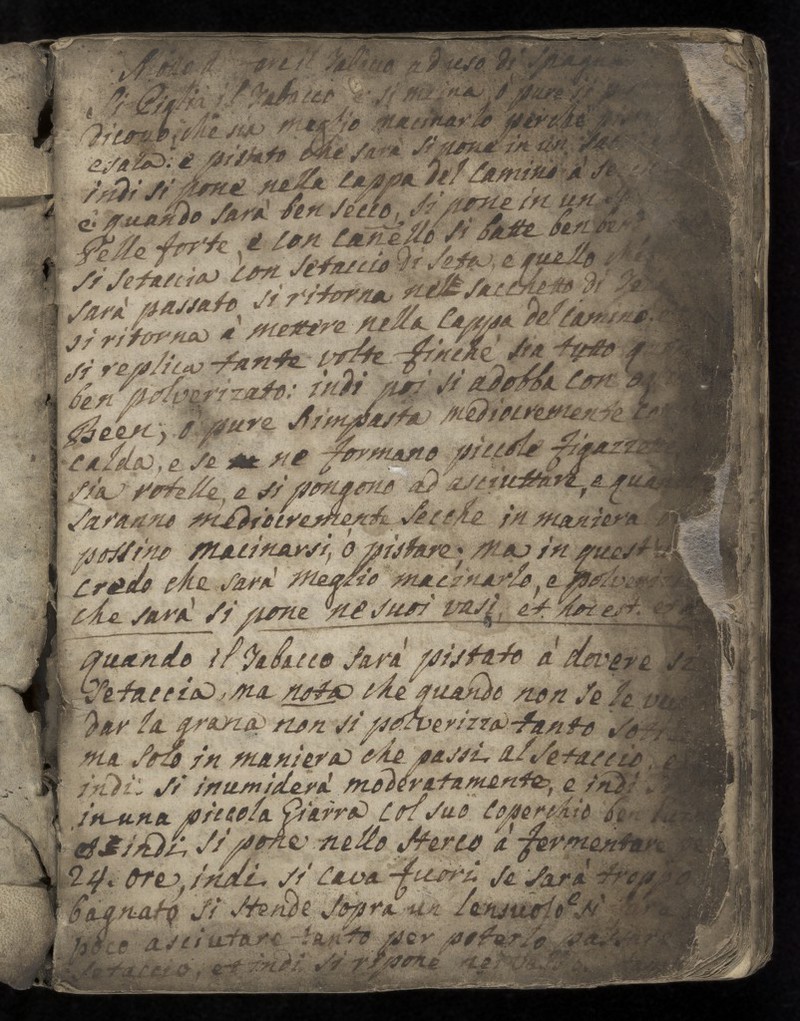 Modo di ore il ad uso di Spagna
Si Piglia il Tabacco e si macina, ò pure si
dicono, che sia meglio macinarlo perche
esala: e pistato che sarà si pone in un
indi si pone nella Cappa del Camino à
e quando sarà ben secco, si pone in un
Pelle forte, e con Cañello si batte ben ben
si setaccia con setaccio di seta, e quello che
sarà passato si ritorna nell sacchetto di
si ritorna à mettere nella Cappa del Camino, e
si replica tante volte finche sia tutto
ben polverizato: indi poi si adobba con
Been; ò pure Rimpasta mediocremente
calda, e se ne formano piccole
sia rotelle, e si pongono ad asciuttare, e
saranno mediocremente secche in maniera
possino macinarsi, ò pistare; ma in
credo che sarà meglio macinarlo, e
che sarà si pone ne suoi vasi, et. hoc est.
quando il Tabacco sarà pistato à dovere si
Setaccia, ma nota che quando non se le
dar la grana non si polverizza tanto
ma solo in maniera che passi al Setaccio, e
indi. si inumiderà moderatamente, e indi
in una piccola Giarra col suo coperchio ben
indi. si pone nello sterco à fermentare
24. ore, indi. si cava fuori. se sarà troppo
bagnato si stende sopra un lensuolo si
poco asciutare tanto per poterlo passare
setaccio, et indi si ripone